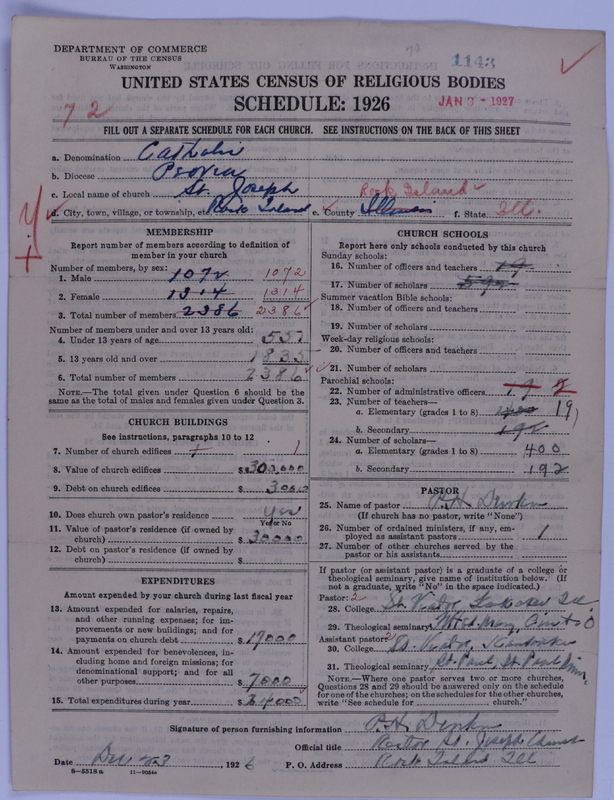 DEPARTMENT OF COMMERCE
BUREAU OF THE CENSUS
WASHINGTON
1143
UNITED STATES CENSUS OF RELIGIOUS BODIES
SCHEDULE: 1926
JAN 3 - 1927
72
FILL OUT A SEPARATE SCHEDULE FOR EACH CHURCH. SEE INSTRUCTIONS ON THE BACK OF THIS SHEET
a. Denomination Catholic
b. Diocese Peoria
c. Local name of church St. Joseph
Rock Island
d. City, town, village, or township, etc. Rock Island e. County Illinois f. State Ill.
MEMBERSHIP
Report number of members according to definition of member in your church
Number of members, by sex:
1. Male 1072 1072
2. Female 1314 1314
3. Total number of members 2386 2386
Number of members under and over 13 years old:
4. Under 13 years of age 551
5. 13 years old and over 1835
6. Total number of members 2386
NOTE.—The total given under Question 6 should be the same as the total of males and females given under Question 3.
CHURCH BUILDINGS
See instructions, paragraphs 10 to 12
7. Number of church edifices 1
8. Value of church edifices $300,000
9. Debt on church edifices $
10. Does church own pastor's residence yes
Yes or No
11. Value of pastor's residence (if owned by church) $30000
12. Debt on pastor's residence (if owned by church) $
EXPENDITURES
Amount expended by your church during last fiscal year
13. Amount expended for salaries, repairs, and other running expenses; for improvements or new buildings; and for payments on church debt $17000
14. Amount expended for benevolences, including home and foreign missions; for denominational support; and for all other purposes $7000
15. Total expenditures during year $24000
CHURCH SCHOOLS
Report here only schools conducted by this church
Sunday schools:
16. Number of officers and teachers 19
17. Number of scholars 592
Summer vacation Bible schools:
18. Number of officers and teachers
19. Number of scholars
Week-day religious schools:
20. Number of officers and teachers
21. Number of scholars
Parochial schools:
22. Number of administrative officers 19 2
23. Number of teachers—
a. Elementary (grades 1 to 8) 400 19
b. Secondary 192
24. Number of scholars—
a. Elementary (grades 1 to 8) 400
b. Secondary 192
PASTOR
25. Name of pastor P.H. Durkin
(If church has no pastor, write "None")
26. Number of ordained ministers, if any, employed as assistant pastors 1
27. Number of other churches served by the pastor or his assistants
If pastor (or assistant pastor) is a graduate of a college or theological seminary, give name of institution below. (If not a graduate, write "No" in the space indicated.)
Pastor: 2
28. College St. Viator, Kankakee Ill
29. Theological seminary Mt St Mary, O
Assistant pastor: 2
30. College St. Viator, Kankakee
31. Theological seminary St Paul, St Paul Minn.
NOTE.—Where one pastor serves two or more churches, Questions 28 and 29 should be answered only on the schedule for one of the churches; on the schedules for the other churches, write "See schedule for church."
Signature of person furnishing information P.H. Durkin
Official title Pastor St. Joseph Church
Date Dec 23, 1926 P. O. Address Rock Island Ill
8—5518a 11—9054a